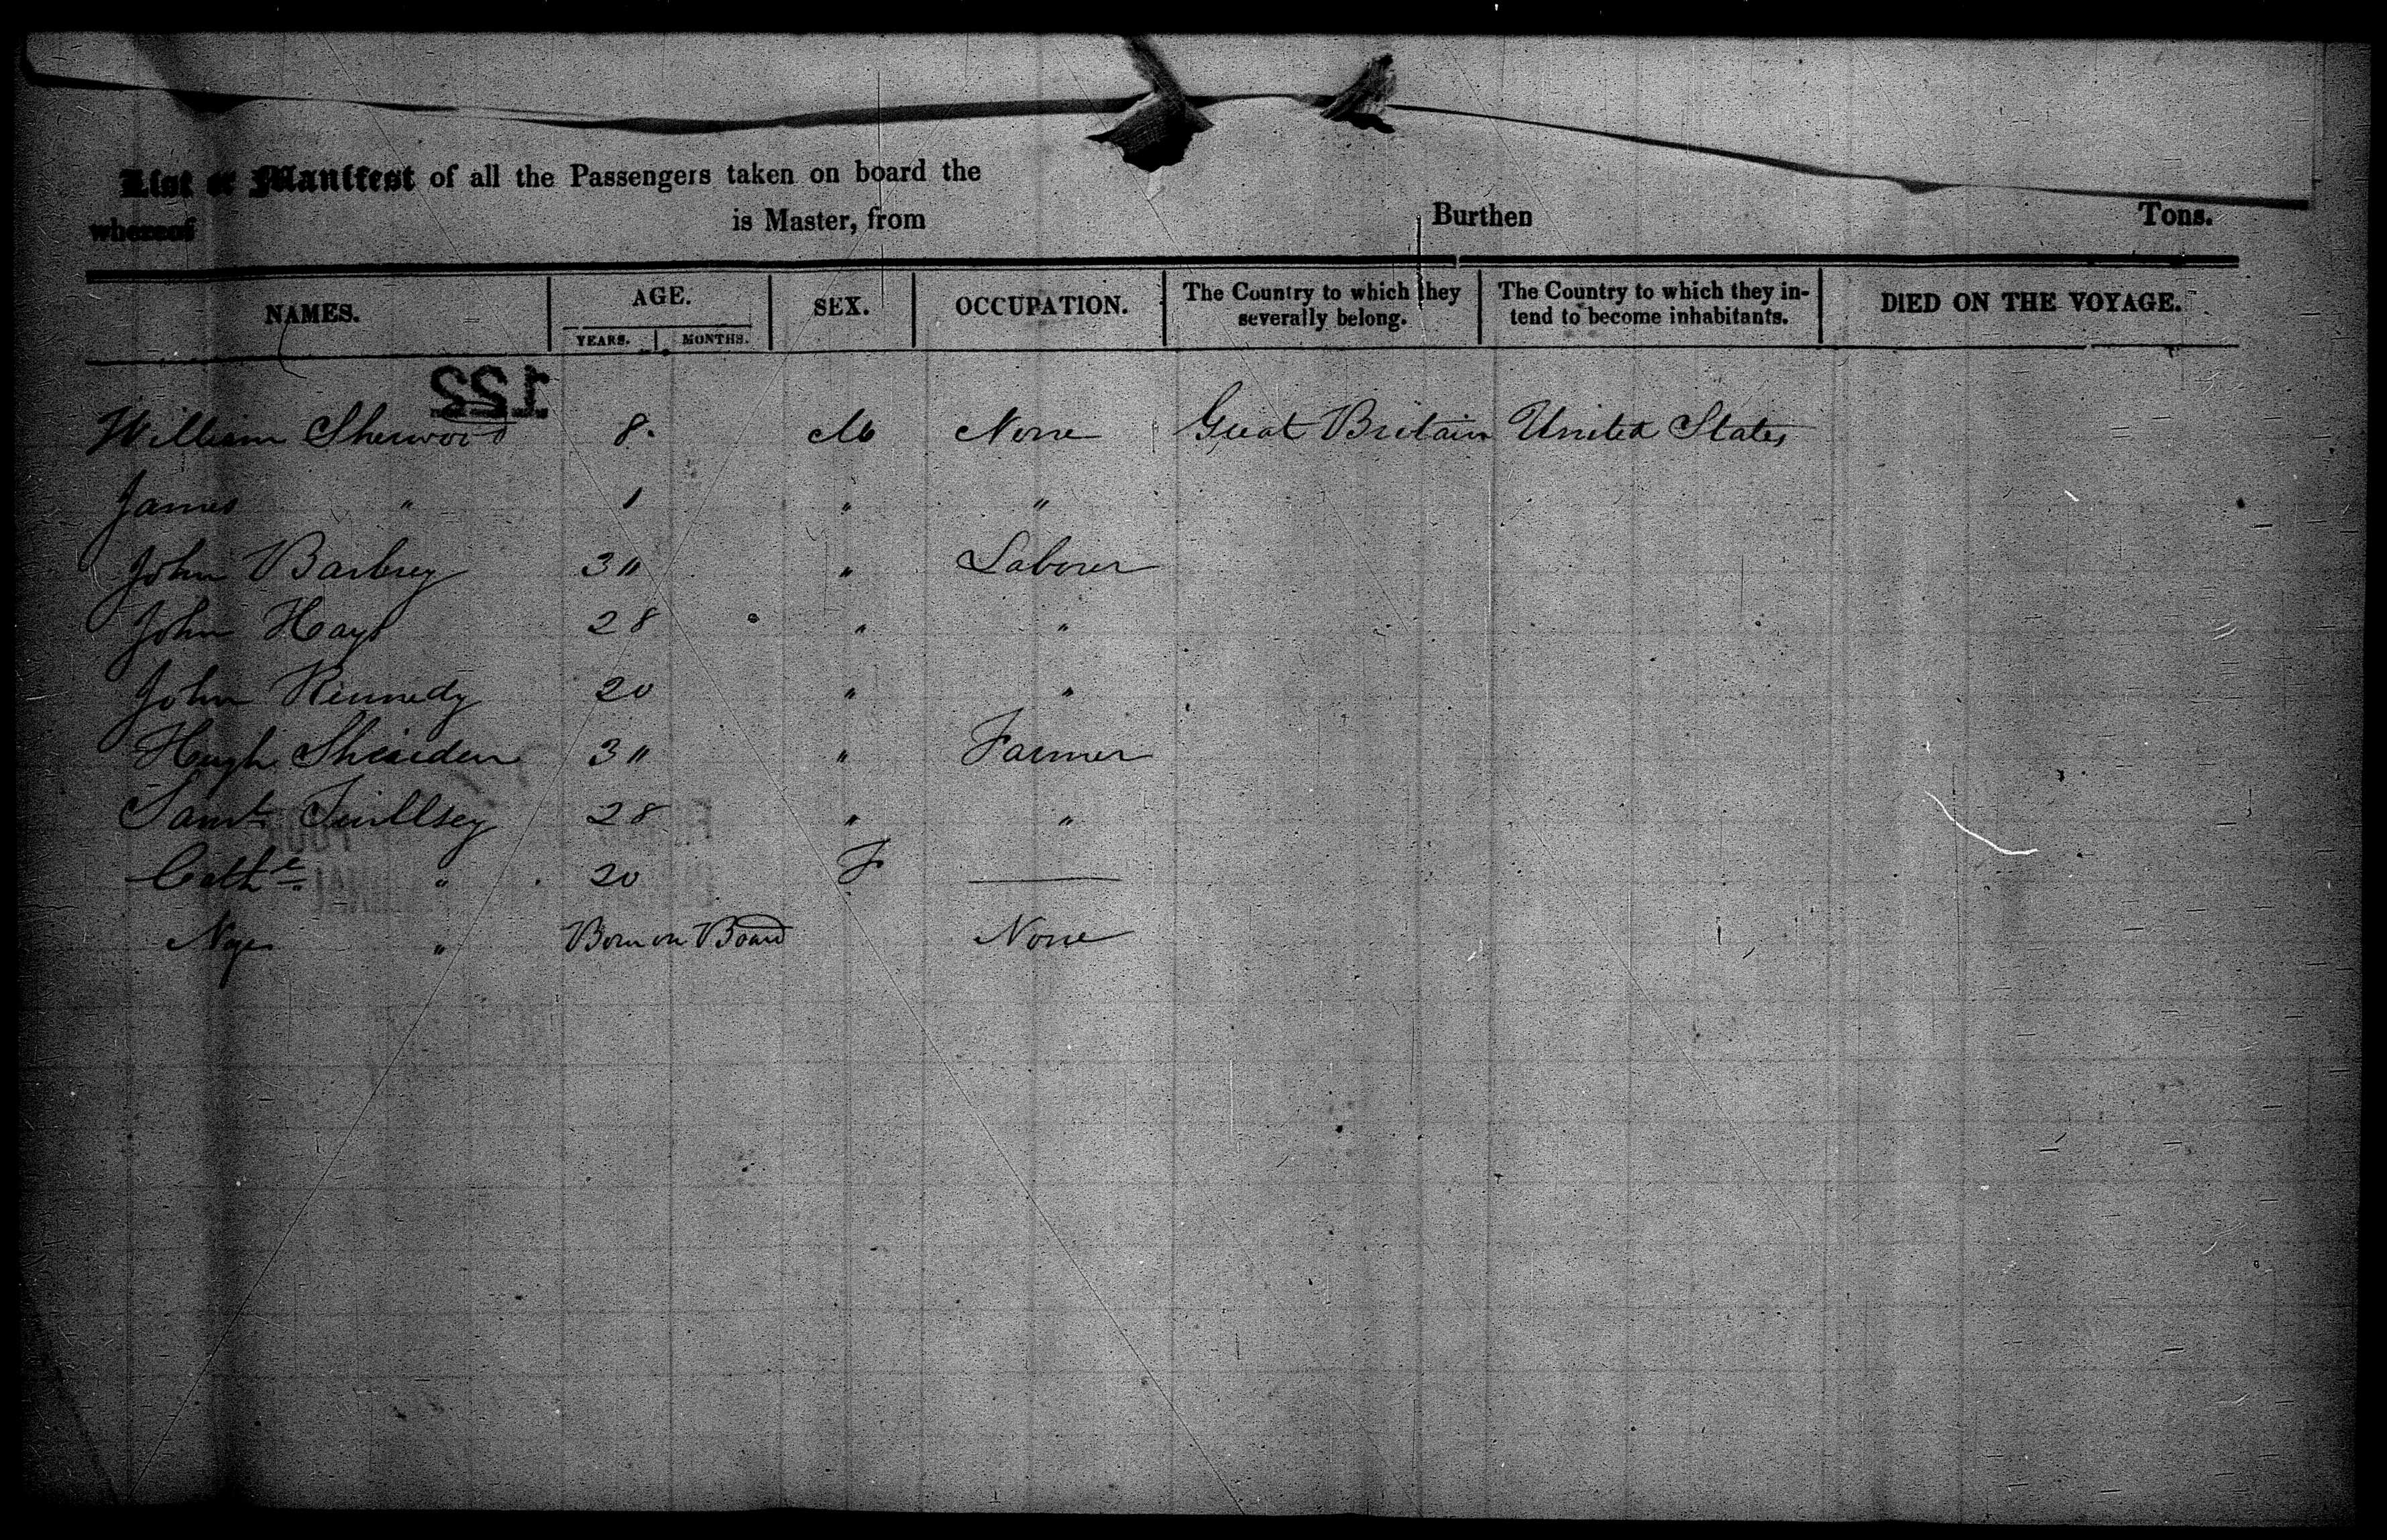 List or Manifest of all the Passengers taken on board the
whereof is Master, from Burthen Tons.
NAMES. AGE. YEARS. MONTHS. SEX. OCCUPATION. The Country to which they severally belong. The Country to which they intend to become inhabitants. DIED ON THE VOYAGE.
122
William Sherwood 8. M None Great Britain United States
James " 1 " "
John Barbrey 3" " Laborer
John Hays 28 " "
John Kennedy 20 " "
Hugh Sheriden 3" " Farmer
28 " "
Cathe " 20 F —
" Born on Board None